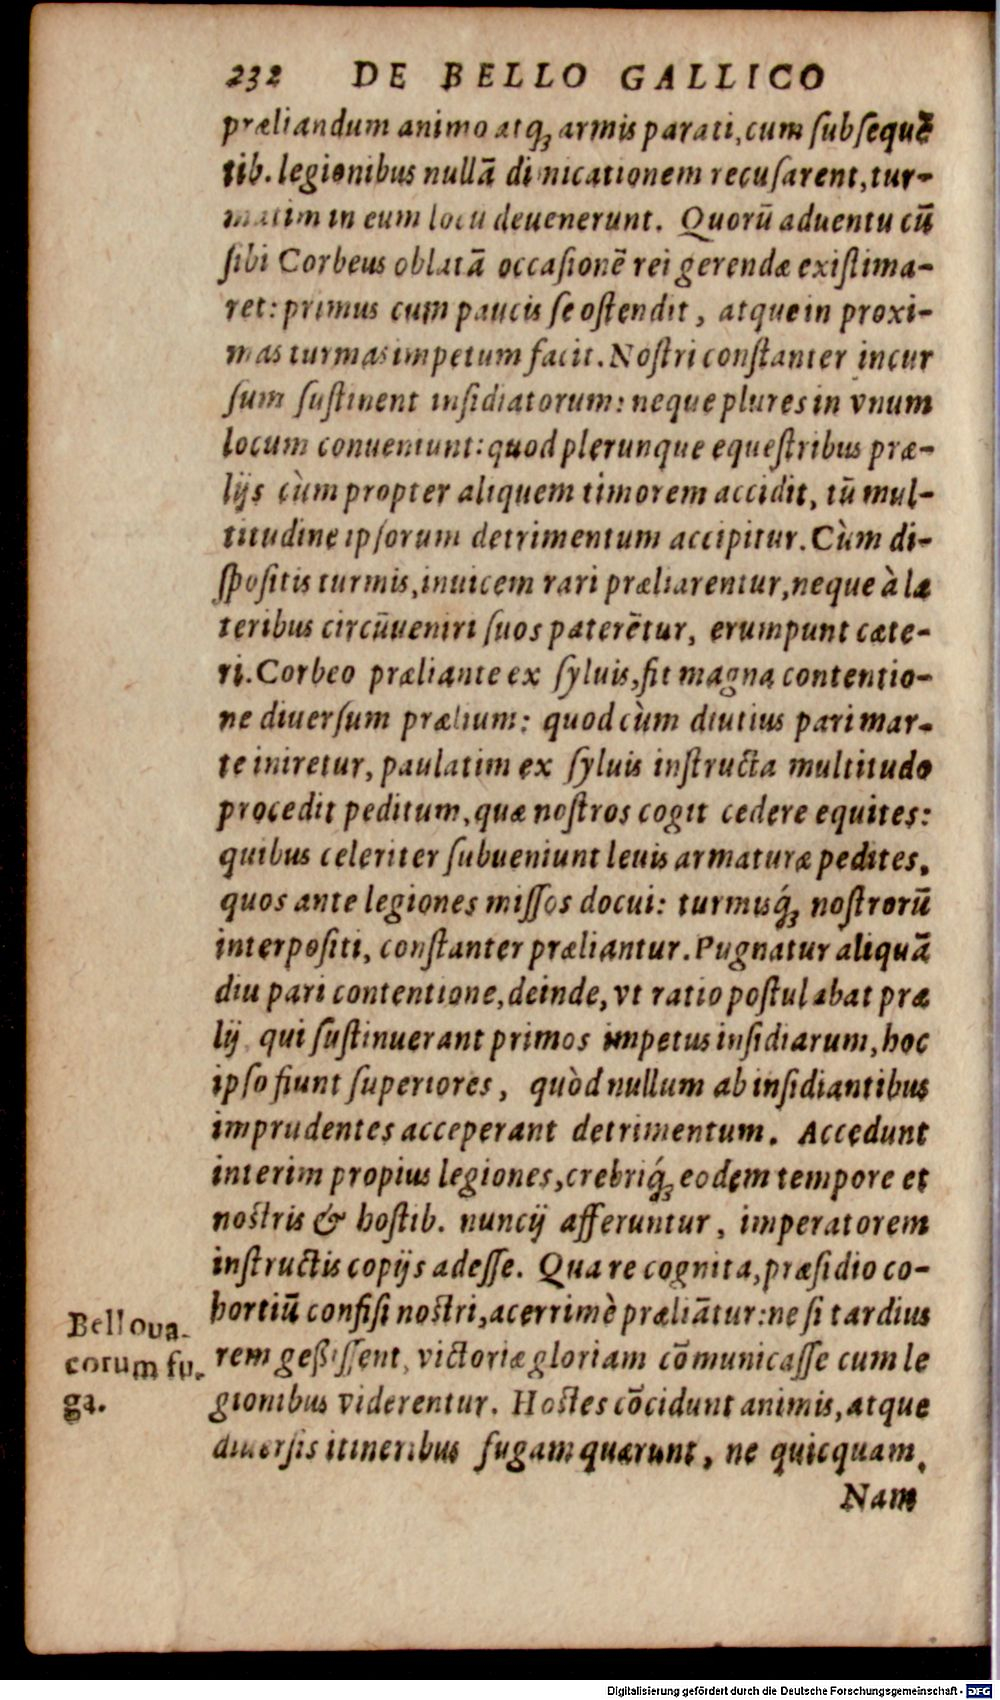 232 DE BELLO GALLICO
præliandum animo atq́ꝫ armis parati, cum subsequẽ
tib. legionibus nullã dimicationem recusarent, tur-
matim in eum locũ deuenerunt. Quorũ aduentu cũ
sibi Corbeus oblatã occasionẽ rei gerendæ existima-
ret: primus cum paucis se ostendit, atque in proxi-
mas turmas impetum facit. Nostri constanter incur
sum sustinent insidiatorum: neque plures in vnum
locum conueniunt: quod plerunque equestribus præ-
lijs cùm propter aliquem timorem accidit, tũ mul-
titudine ipsorum detrimentum accipitur. Cùm di-
spositis turmis, inuicem rari præliarentur, neque à la
teribus circũueniri suos paterẽtur, erumpunt cæte-
ri. Corbeo præliante ex syluis, fit magna contentio-
ne diuersum prælium: quod cùm diutius pari mar-
te iniretur, paulatim ex syluis instructa multitudo
procedit peditum, quæ nostros cogit cedere equites:
quibus celeriter subueniunt leuis armaturæ pedites,
quos ante legiones missos docui: turmisq́ꝫ nostrorũ
interpositi, constanter præliantur. Pugnatur aliquã
diu pari contentione, deinde, vt ratio postulabat præ
lij qui sustinuerant primos impetus insidiarum, hoc
ipso fiunt superiores, quòd nullum ab insidiantibus
imprudentes acceperant detrimentum. Accedunt
interim propius legiones, crebriq́ꝫ eodem tempore et
nostris & hostib. nuncij afferuntur, imperatorem
instructis copijs adesse. Qua re cognita, præsidio co-
hortiũ confisi nostri, acerrimè præliãtur: ne si tardius
rem geßissent, victoriæ gloriam cõmunicasse cum le
gionibus viderentur. Hostes cõcidunt animis, atque
diuersis itineribus fugam quærunt, ne quicquam.
Nam
Belloua-
corum fu-
ga.
Digitalisierung gefördert durch die Deutsche Forschungsgemeinschaft - DFG